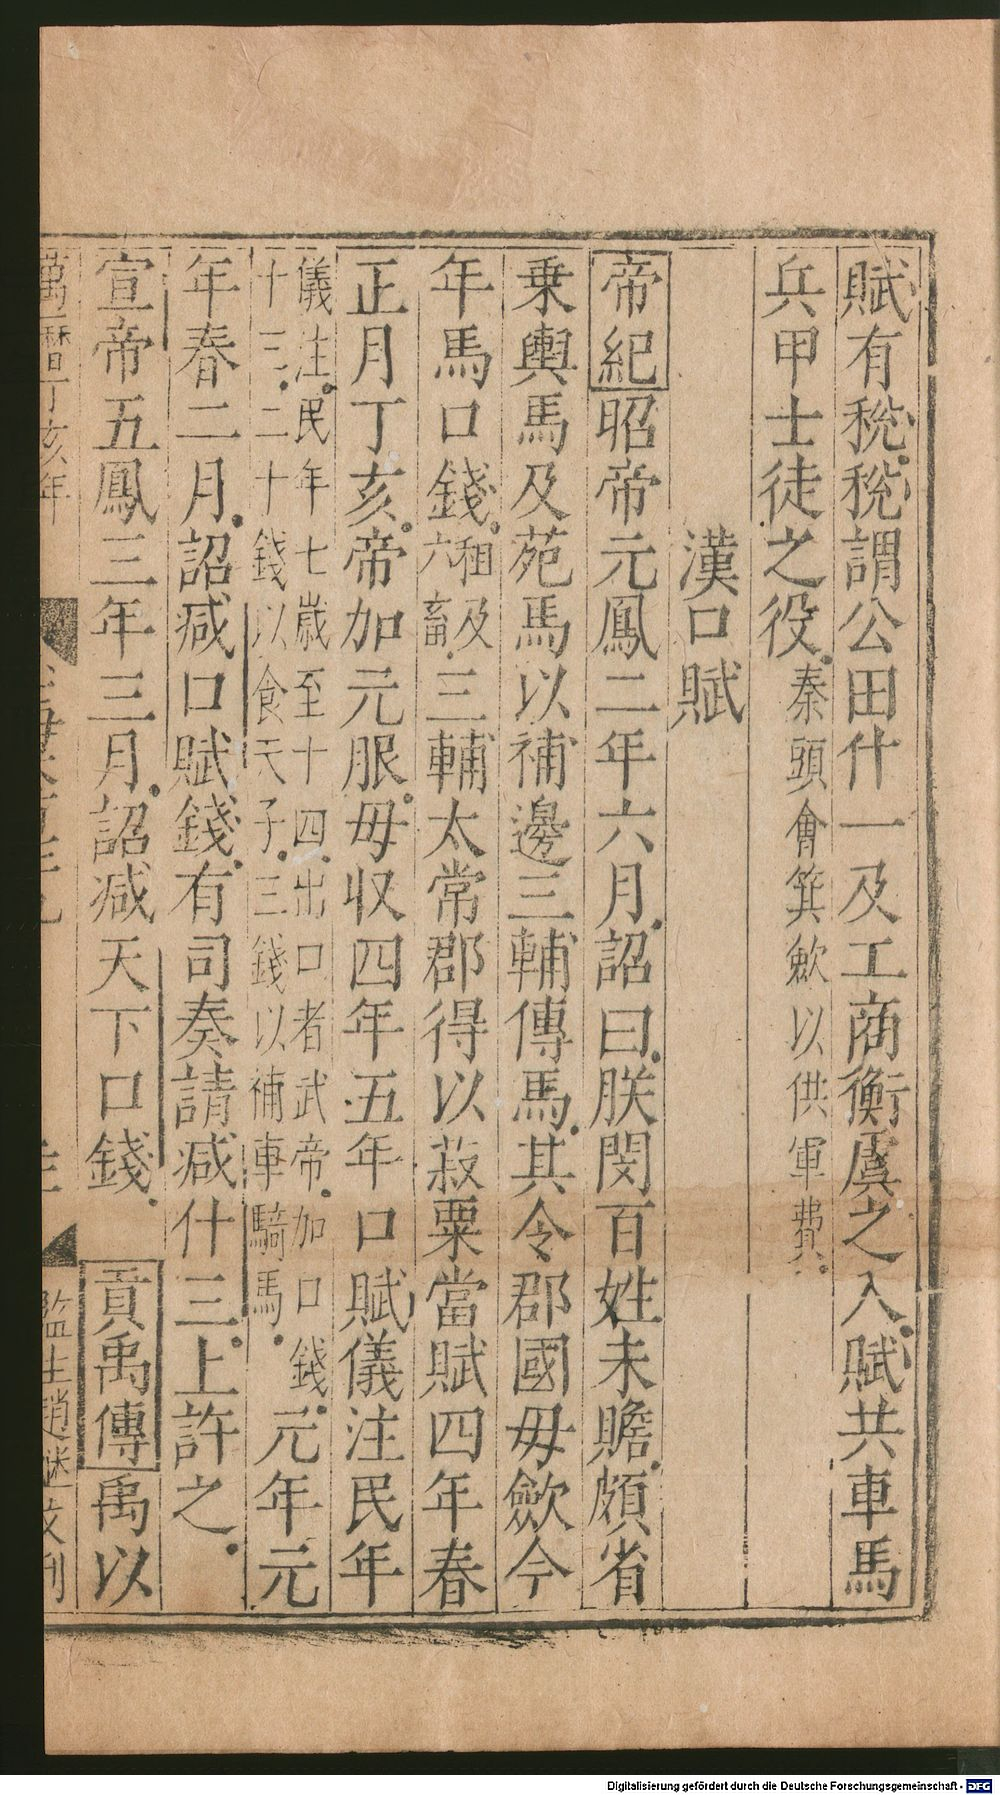 賦有稅稅謂公田什一及工商衡虞之入賦共車馬
兵甲士徒之役秦頭會箕歛以供軍費
漢口賦
帝紀昭帝元鳳二年六月詔曰朕閔百姓未贍頗省
乗輿馬及苑馬以補邊三輔傳馬其令郡國毋歛今
年馬口錢租及六畜三輔太常郡得以菽粟當賦四年春
正月丁亥帝加元服毋収四年五年口賦儀注民年
儀注民年七歲至十四出口者武帝加口錢元年元
十三二十錢以食天子三錢以補車騎馬
年春二月詔减口賦錢有司奏請减什三上許之
宣帝五鳳三年三月詔减天下口錢 貢禹傳禹以
萬曆丁亥年
監生趙
刊
Digitalisierung gefördert durch die Deutsche Forschungsgemeinschaft - DFG